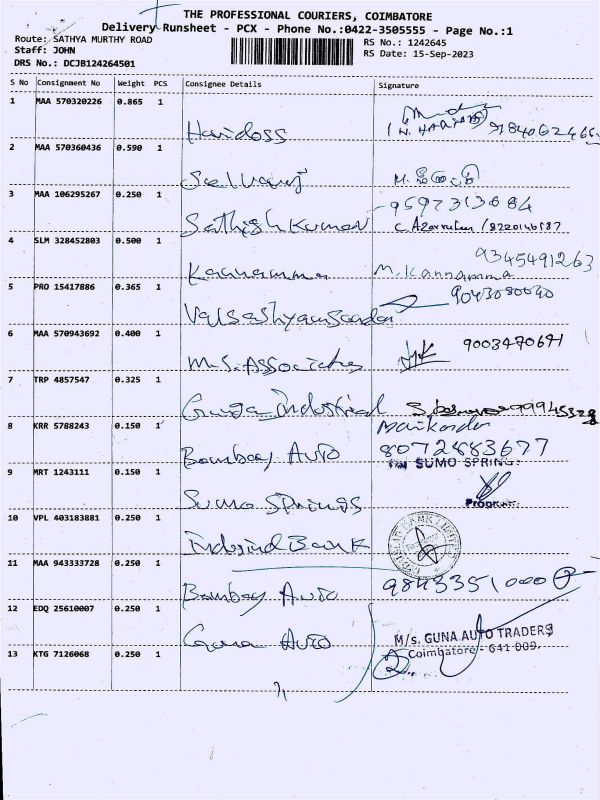 THE PROFESSIONAL COURIERS, COIMBATORE
Delivery Runsheet - PCX - Phone No.:0422-3505555 - Page No.:1
Route: SATHYA MURTHY ROAD
RS No.: 1242645
Staff: JOHN
RS Date: 15-Sep-2023
DRS No.: DCJB124264501
S No Consignment No Weight PCS Consignee Details Signature
1 MAA 570320226 0.865 1
Haridoss
2 MAA 570360436 0.590 1
Selvaraj
3 MAA 106295267 0.250 1
9597313684
Sathish Kumar
4 SLM 328452803 0.500 1
9345491263
Kannamma M. Kannamma
5 PRO 15417886 0.365 1
6 MAA 570943692 0.400 1
9003470671
M.S. Associates
7 TRP 4857547 0.325 1
Guga Industrial
8 KRR 5788243 0.150 1
Bombay Auto 8072883677
SUMO SPRING
9 MRT 1243111 0.150 1
Sumo Springs
10 VPL 403183881 0.250 1
Indusind Bank
11 MAA 943333728 0.250 1
Bombay Auto 9843351000
12 EDQ 25610007 0.250 1
Guna Auto
M/s. GUNA AUTO TRADERS
Coimbatore - 641 009.
13 KTG 7126068 0.250 1